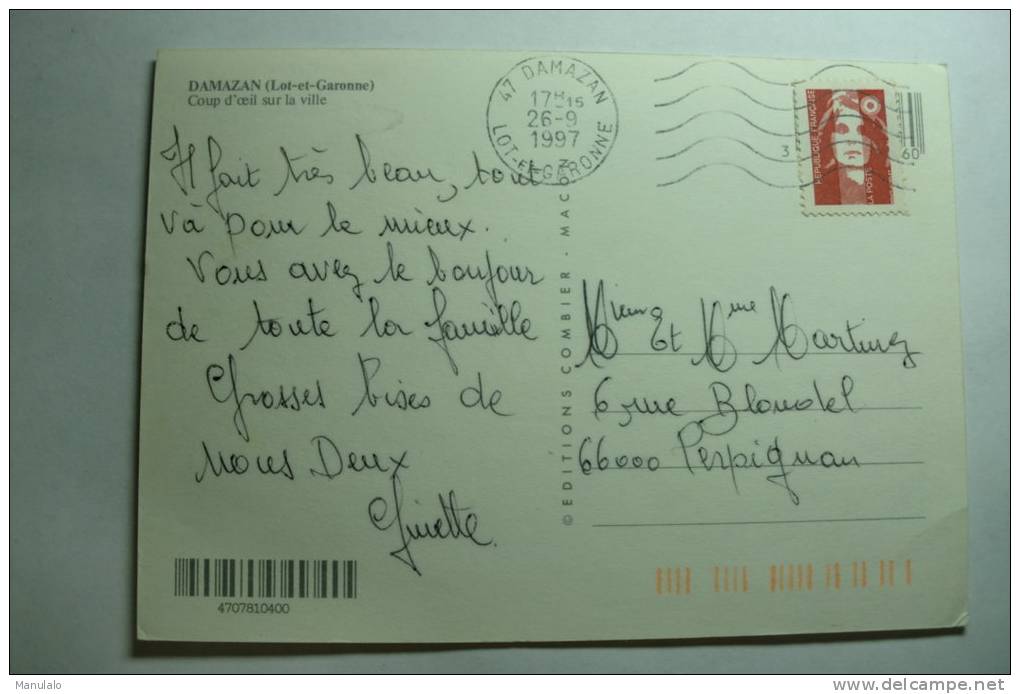 DAMAZAN (Lot-et-Garonne)
Coup d'œil sur la ville
47 DAMAZAN
17H15
26-9
1997
LOT-ET-GARONNE
REPUBLIQUE FRANÇAISE
LA POSTE
3
60
Il fait très beau, tout
va pour le mieux.
Vous avez le bonjour
de toute la famille
Grosses bises de
Nous Deux
Ginette.
© EDITIONS COMBIER - MACON
Et Mme Martinez
6, rue Blondel
66000 Perpignan
4707810400
Manulalo
delcampe.net